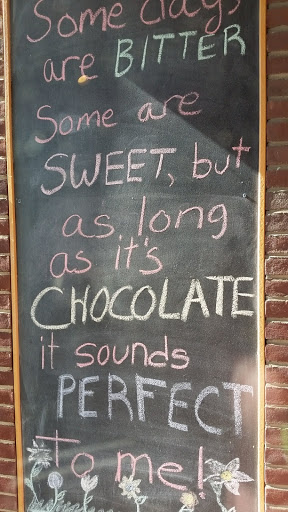 Some days
are BITTER
Some are
SWEET, but
as long
as it's
CHOCOLATE
it sounds
PERFECT
To me!